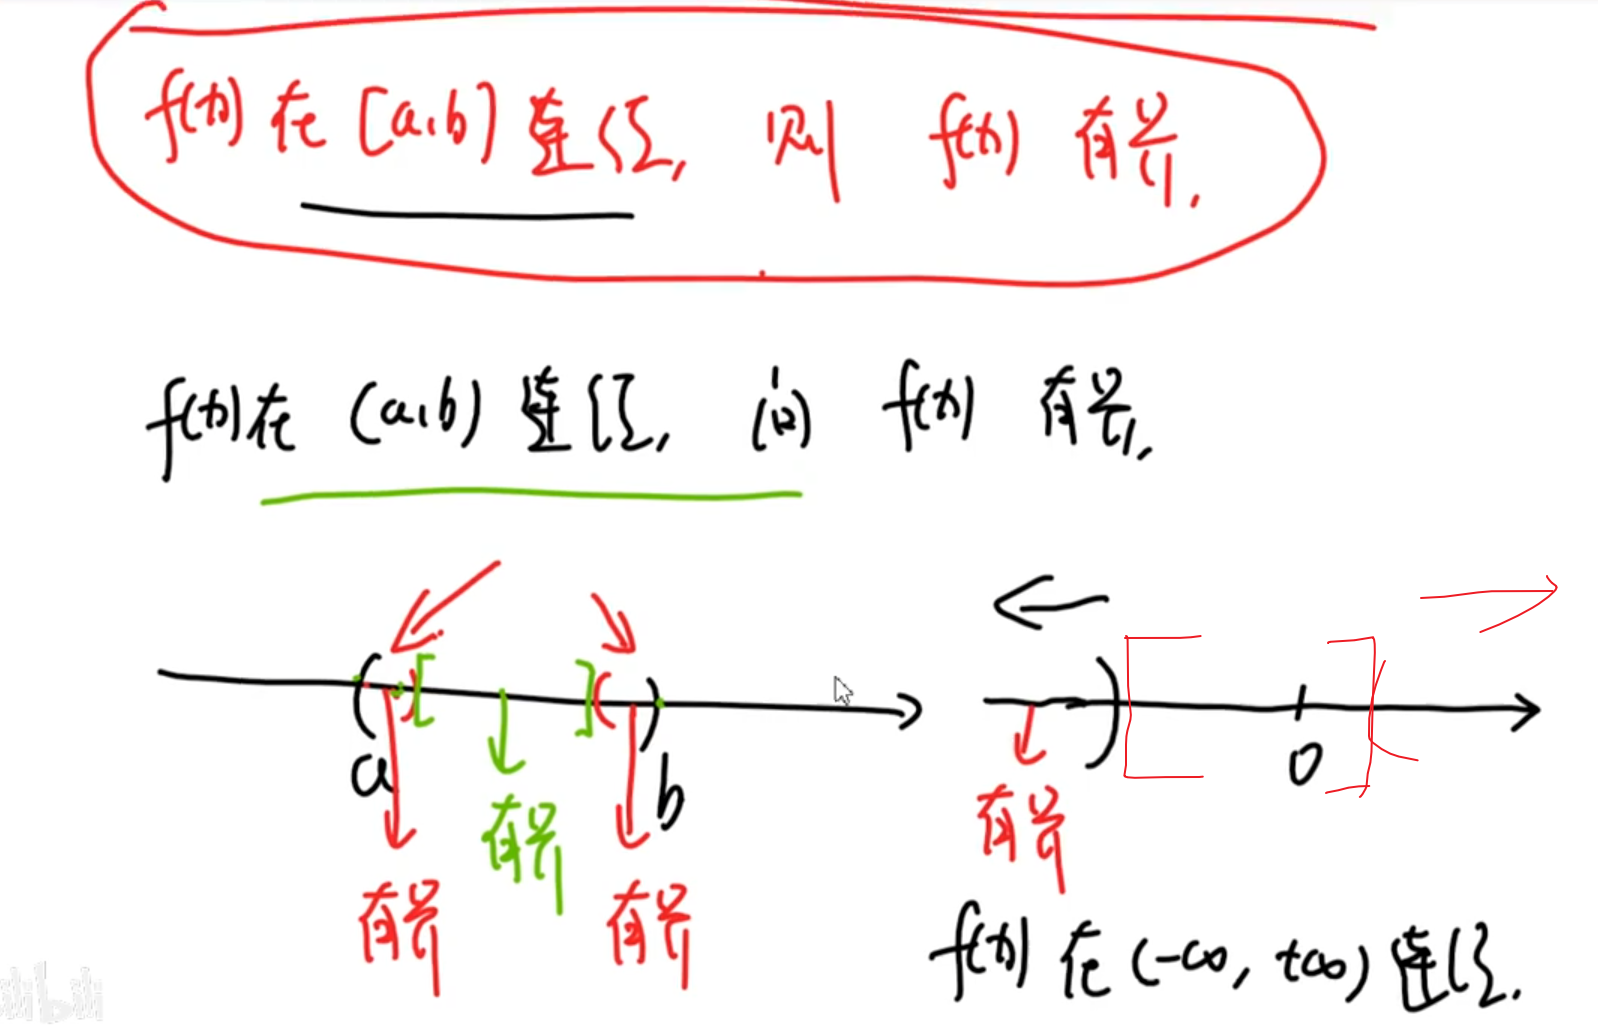 f(x) 在 [a,b] 连续, 则 f(x) 有界.
f(x) 在 (a,b) 连续, 问 f(x) 有界,
( ) [ ] ( )
a b
有界 有界 有界
) [ 0 ] (
有界
f(x) 在 (-∞, +∞) 连续.
bilibili